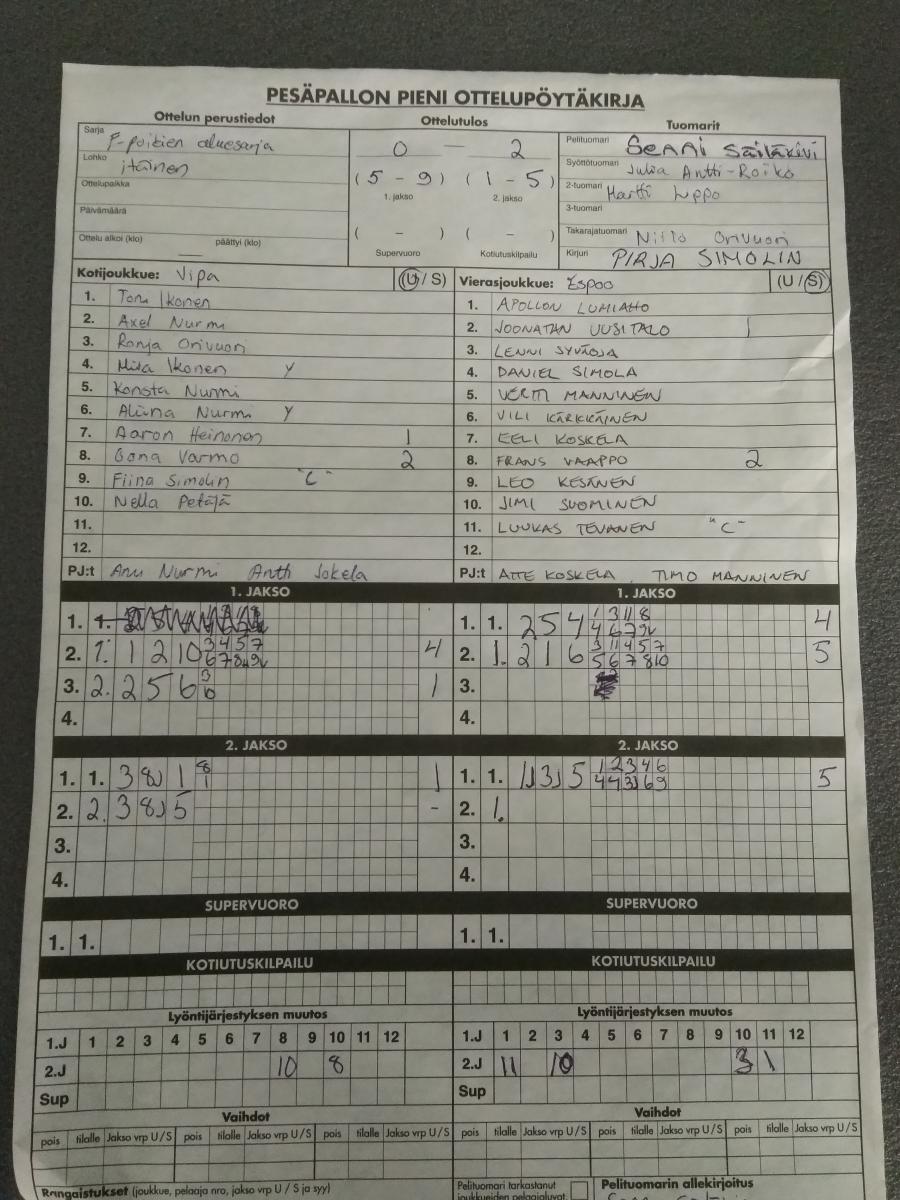 PESÄPALLON PIENI OTTELUPÖYTÄKIRJA
Ottelun perustiedot
Sarja F-poikien aluesarja
Lohko itäinen
Ottelupaikka
Päivämäärä
Ottelu alkoi (klo) päättyi (klo)
Ottelutulos
0 — 2
(5 - 9) (1 - 5)
1. jakso 2. jakso
( - ) ( - )
Supervuoro Kotiutuskilpailu
Tuomarit
Pelituomari Senni Säiläkivi
Syöttötuomari Julia Antti-Roiko
2-tuomari Martti Lippo
3-tuomari
Takarajatuomari Niilo Orivuori
Kirjuri PIRJA SIMOLIN
Kotijoukkue: Vipa (U / S)
1. Toni Ikonen
2. Axel Nurmi
3. Ronja Orivuori
4. Miia Ikonen y
5. Konsta Nurmi
6. Aliina Nurmi y
7. Aaron Heinonen 1
8. Oona Varmo 2
9. Fiina Simolin "C"
10. Nella Petäjä
11.
12.
PJ:t Anu Nurmi Antti Jokela
Vierasjoukkue: Espoo (U / S)
1. APOLLON LUMIAHO
2. JOONATAN UUSITALO 1
3. LENNI SYVÄOJA
4. DANIEL SIMOLA
5. VERTTI MANNINEN
6. VILI KÄRKKÄINEN
7. EELI KOSKELA
8. FRANS VAAPPO 2
9. LEO KESÄNEN
10. JIMI SUOMINEN
11. LUUKAS TEVANEN "C"
12.
PJ:t ATTE KOSKELA, TIMO MANNINEN
1. JAKSO
1. 1.
2. 1. 1 2 10 3 4 5 7 4
3. 2. 2 5 6 3 1
4.
1. JAKSO
1. 1. 2 5 4 1 3 11 8 4
4 6 7 9
2. 1. 2 1 6 3 11 4 5 7 5
5 6 7 8 10
3.
4.
2. JAKSO
1. 1. 3 8J 1 8 1
1
2. 2. 3 8J 5 -
3.
4.
2. JAKSO
1. 1. 1J 3J 5 1 2 3 4 6 5
4 4 3J 6 9
2. 1.
3.
4.
SUPERVUORO
1. 1.
SUPERVUORO
1. 1.
KOTIUTUSKILPAILU
KOTIUTUSKILPAILU
Lyöntijärjestyksen muutos
1.J 1 2 3 4 5 6 7 8 9 10 11 12
2.J 10 8
Sup
Lyöntijärjestyksen muutos
1.J 1 2 3 4 5 6 7 8 9 10 11 12
2.J 11 10 3 1
Sup
Vaihdot
pois tilalle Jakso vrp U/S pois tilalle Jakso vrp U/S pois tilalle Jakso vrp U/S
Vaihdot
pois tilalle Jakso vrp U/S pois tilalle Jakso vrp U/S pois tilalle Jakso vrp U/S
Rangaistukset (joukkue, pelaaja nro, jakso vrp U / S ja syy)
Pelituomari tarkastanut
joukkueiden pelaajaluvat.
Pelituomarin allekirjoitus